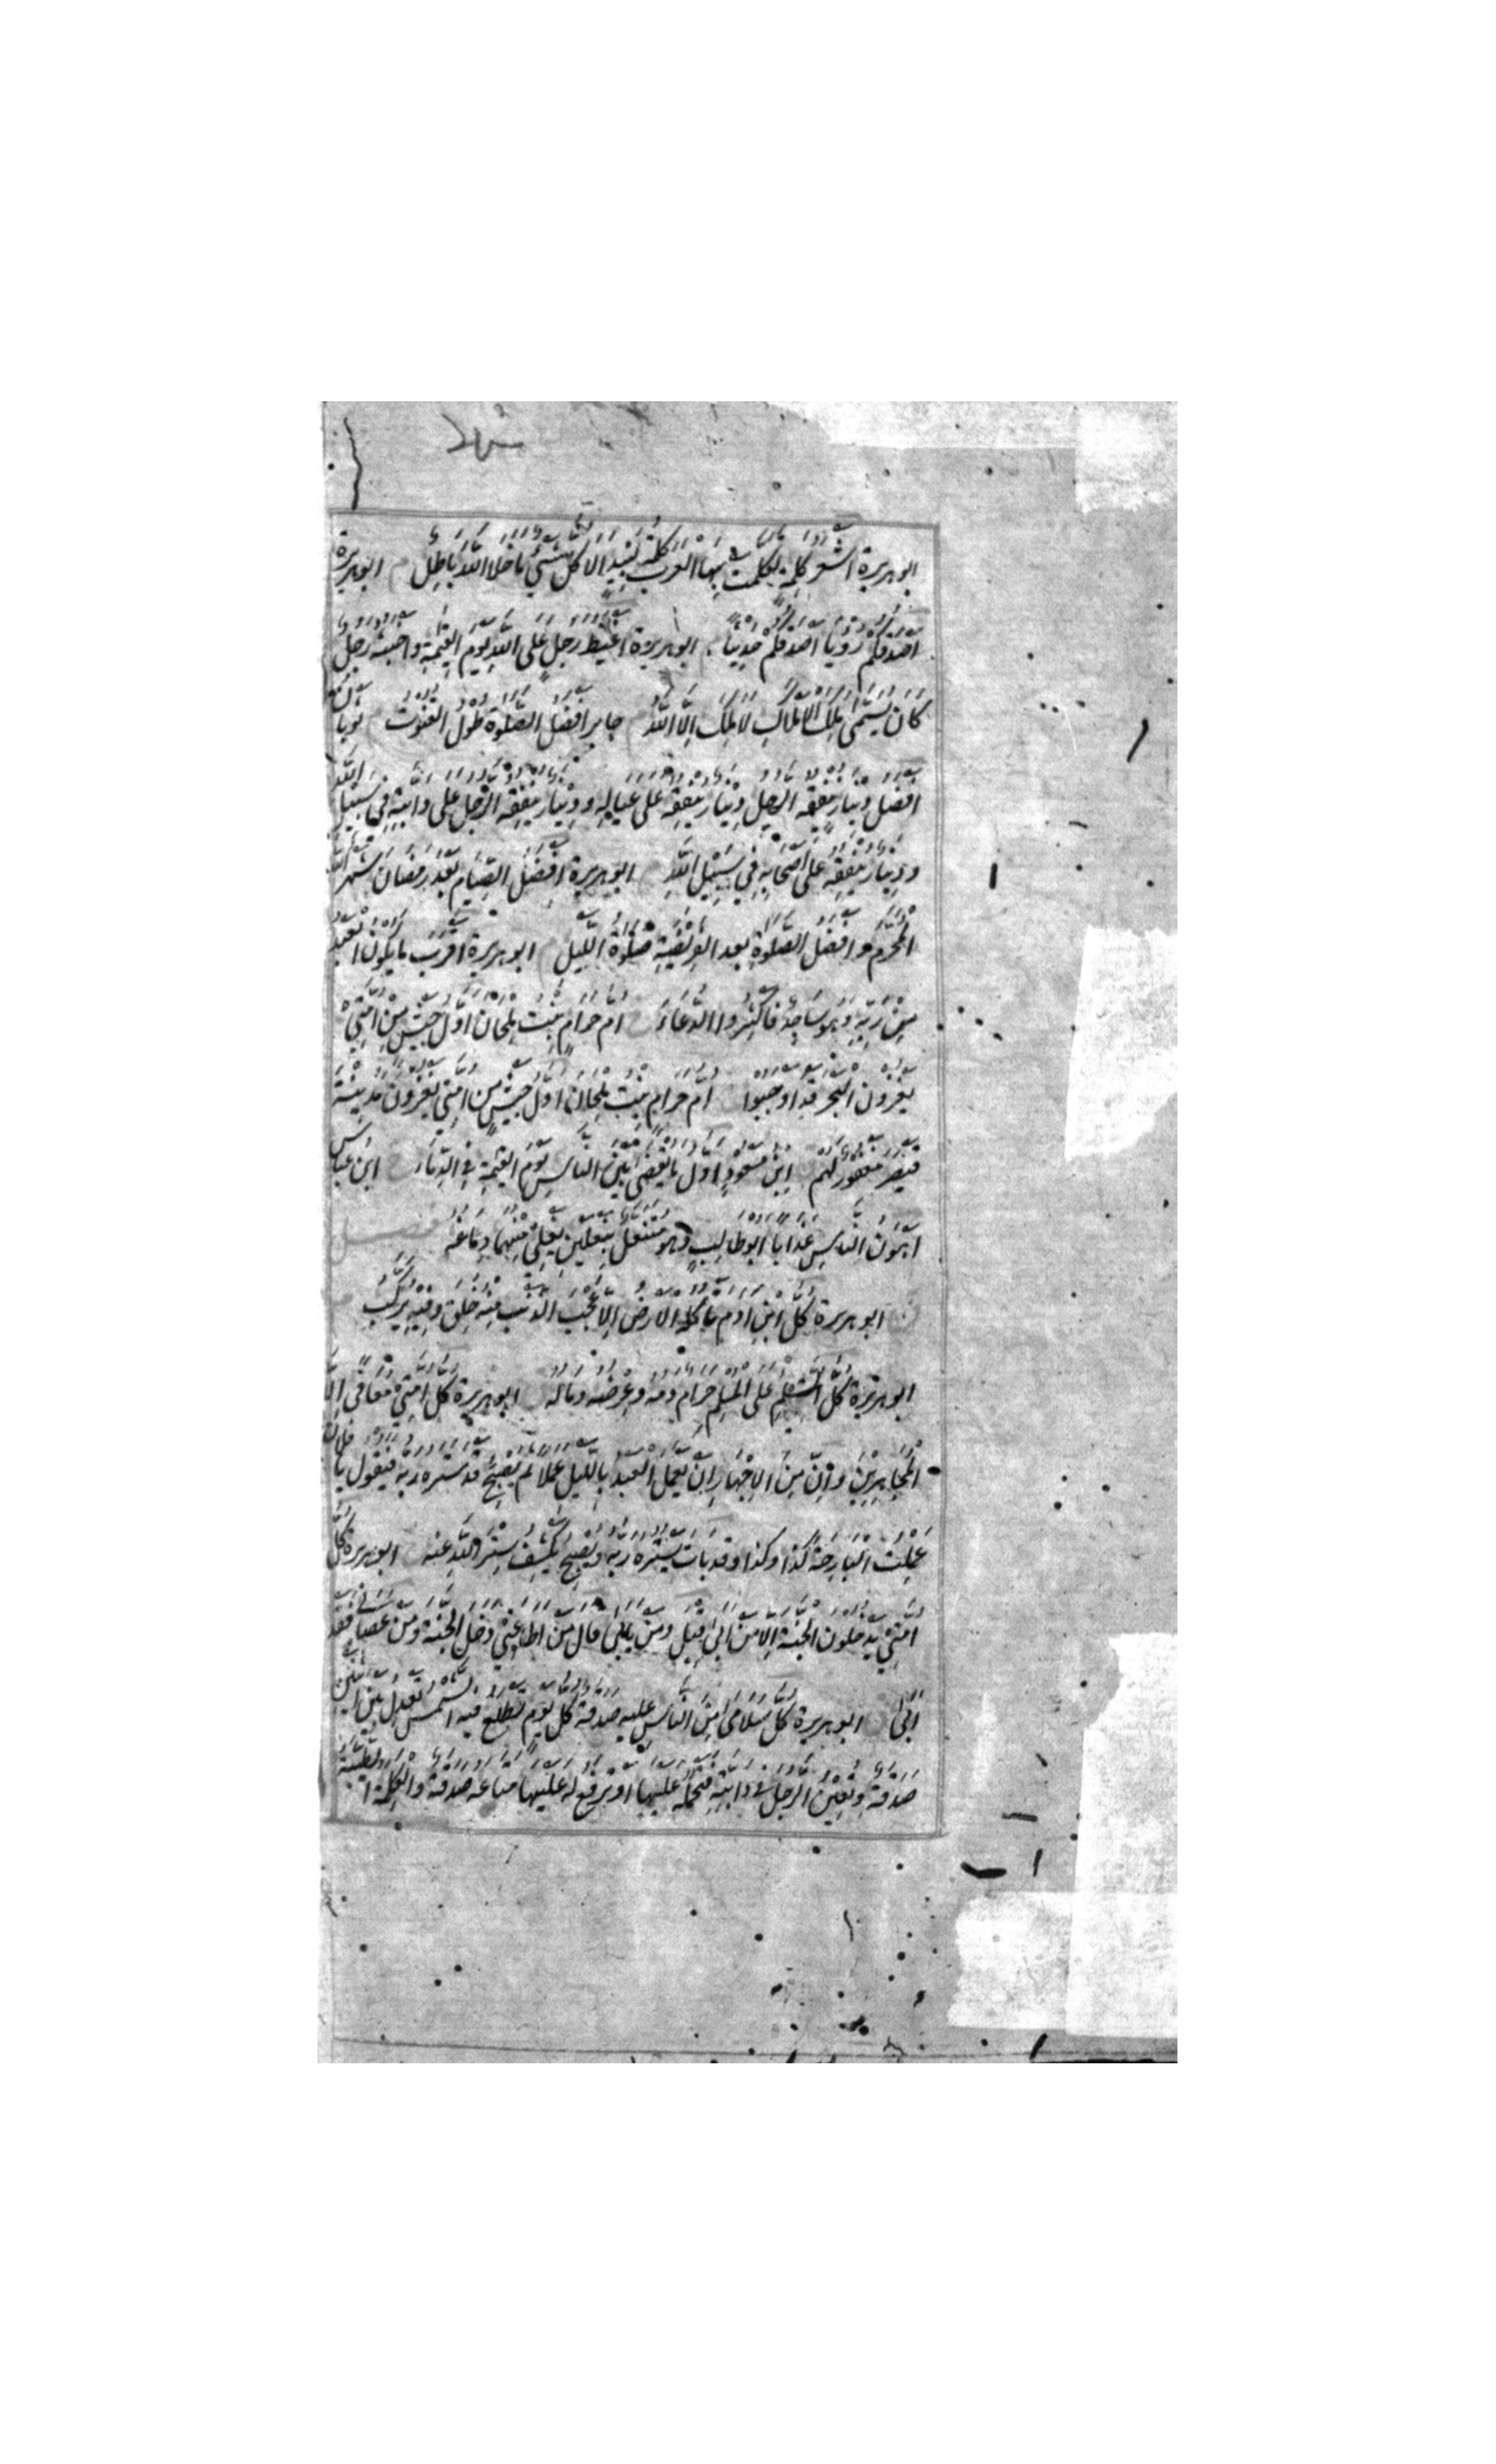 ابو هريرة اشعر كلمة تكلمت بها العرب كلمة لبيد الا كل شئ ما خلا الله باطل م ابو هريرة
اصدقكم رؤيا اصدقكم حديثا ابو هريرة اغيظ رجل على الله يوم القيمة واخبثه رجل
كان يسمى ملك الاملاك لا ملك الا الله جابر افضل الصلوة طول القنوت ثوبان
افضل دينار ينفقه الرجل دينار ينفقه على عياله ودينار ينفقه الرجل على دابته في سبيل الله
ودينار ينفقه على اصحابه في سبيل الله ابو هريرة افضل الصيام بعد رمضان شهر الله
المحرم وافضل الصلوة بعد الفريضة صلوة الليل ابو هريرة اقرب ما يكون العبد
من ربه وهو ساجد فاكثروا الدعاء ام حرام بنت ملحان اول جيش من امتي
يغزون البحر قد اوجبوا ام حرام بنت ملحان اول جيش من امتي يغزون مدينة
قيصر مغفور لهم ابن مسعود اول ما يقضى بين الناس يوم القيمة في الدماء ابن عباس
اهون الناس عذابا ابو طالب وهو منتعل بنعلين يغلي منهما دماغه فصل
ابو هريرة كل ابن ادم ياكله الارض الا عجب الذنب منه خلق وفيه يركب
ابو هريرة كل المسلم على المسلم حرام دمه وعرضه وماله ابو هريرة كل امتي معافى الا
المجاهرين وان من الاجهار ان يعمل العبد بالليل عملا ثم يصبح قد ستره ربه فيقول يا فلان
عملت البارحة كذا وكذا وقد بات يستره ربه ويصبح يكشف ستر الله عنه ابو هريرة كل
امتي يدخلون الجنة الا من ابى قيل ومن يابى قال من اطاعني دخل الجنة ومن عصاني فقد
ابى ابو هريرة كل سلامى من الناس عليه صدقة كل يوم تطلع فيه الشمس تعدل بين اثنين
صدقة وتعين الرجل في دابته فتحمله عليها او ترفع له عليها متاعه صدقة والكلمة الطيبة